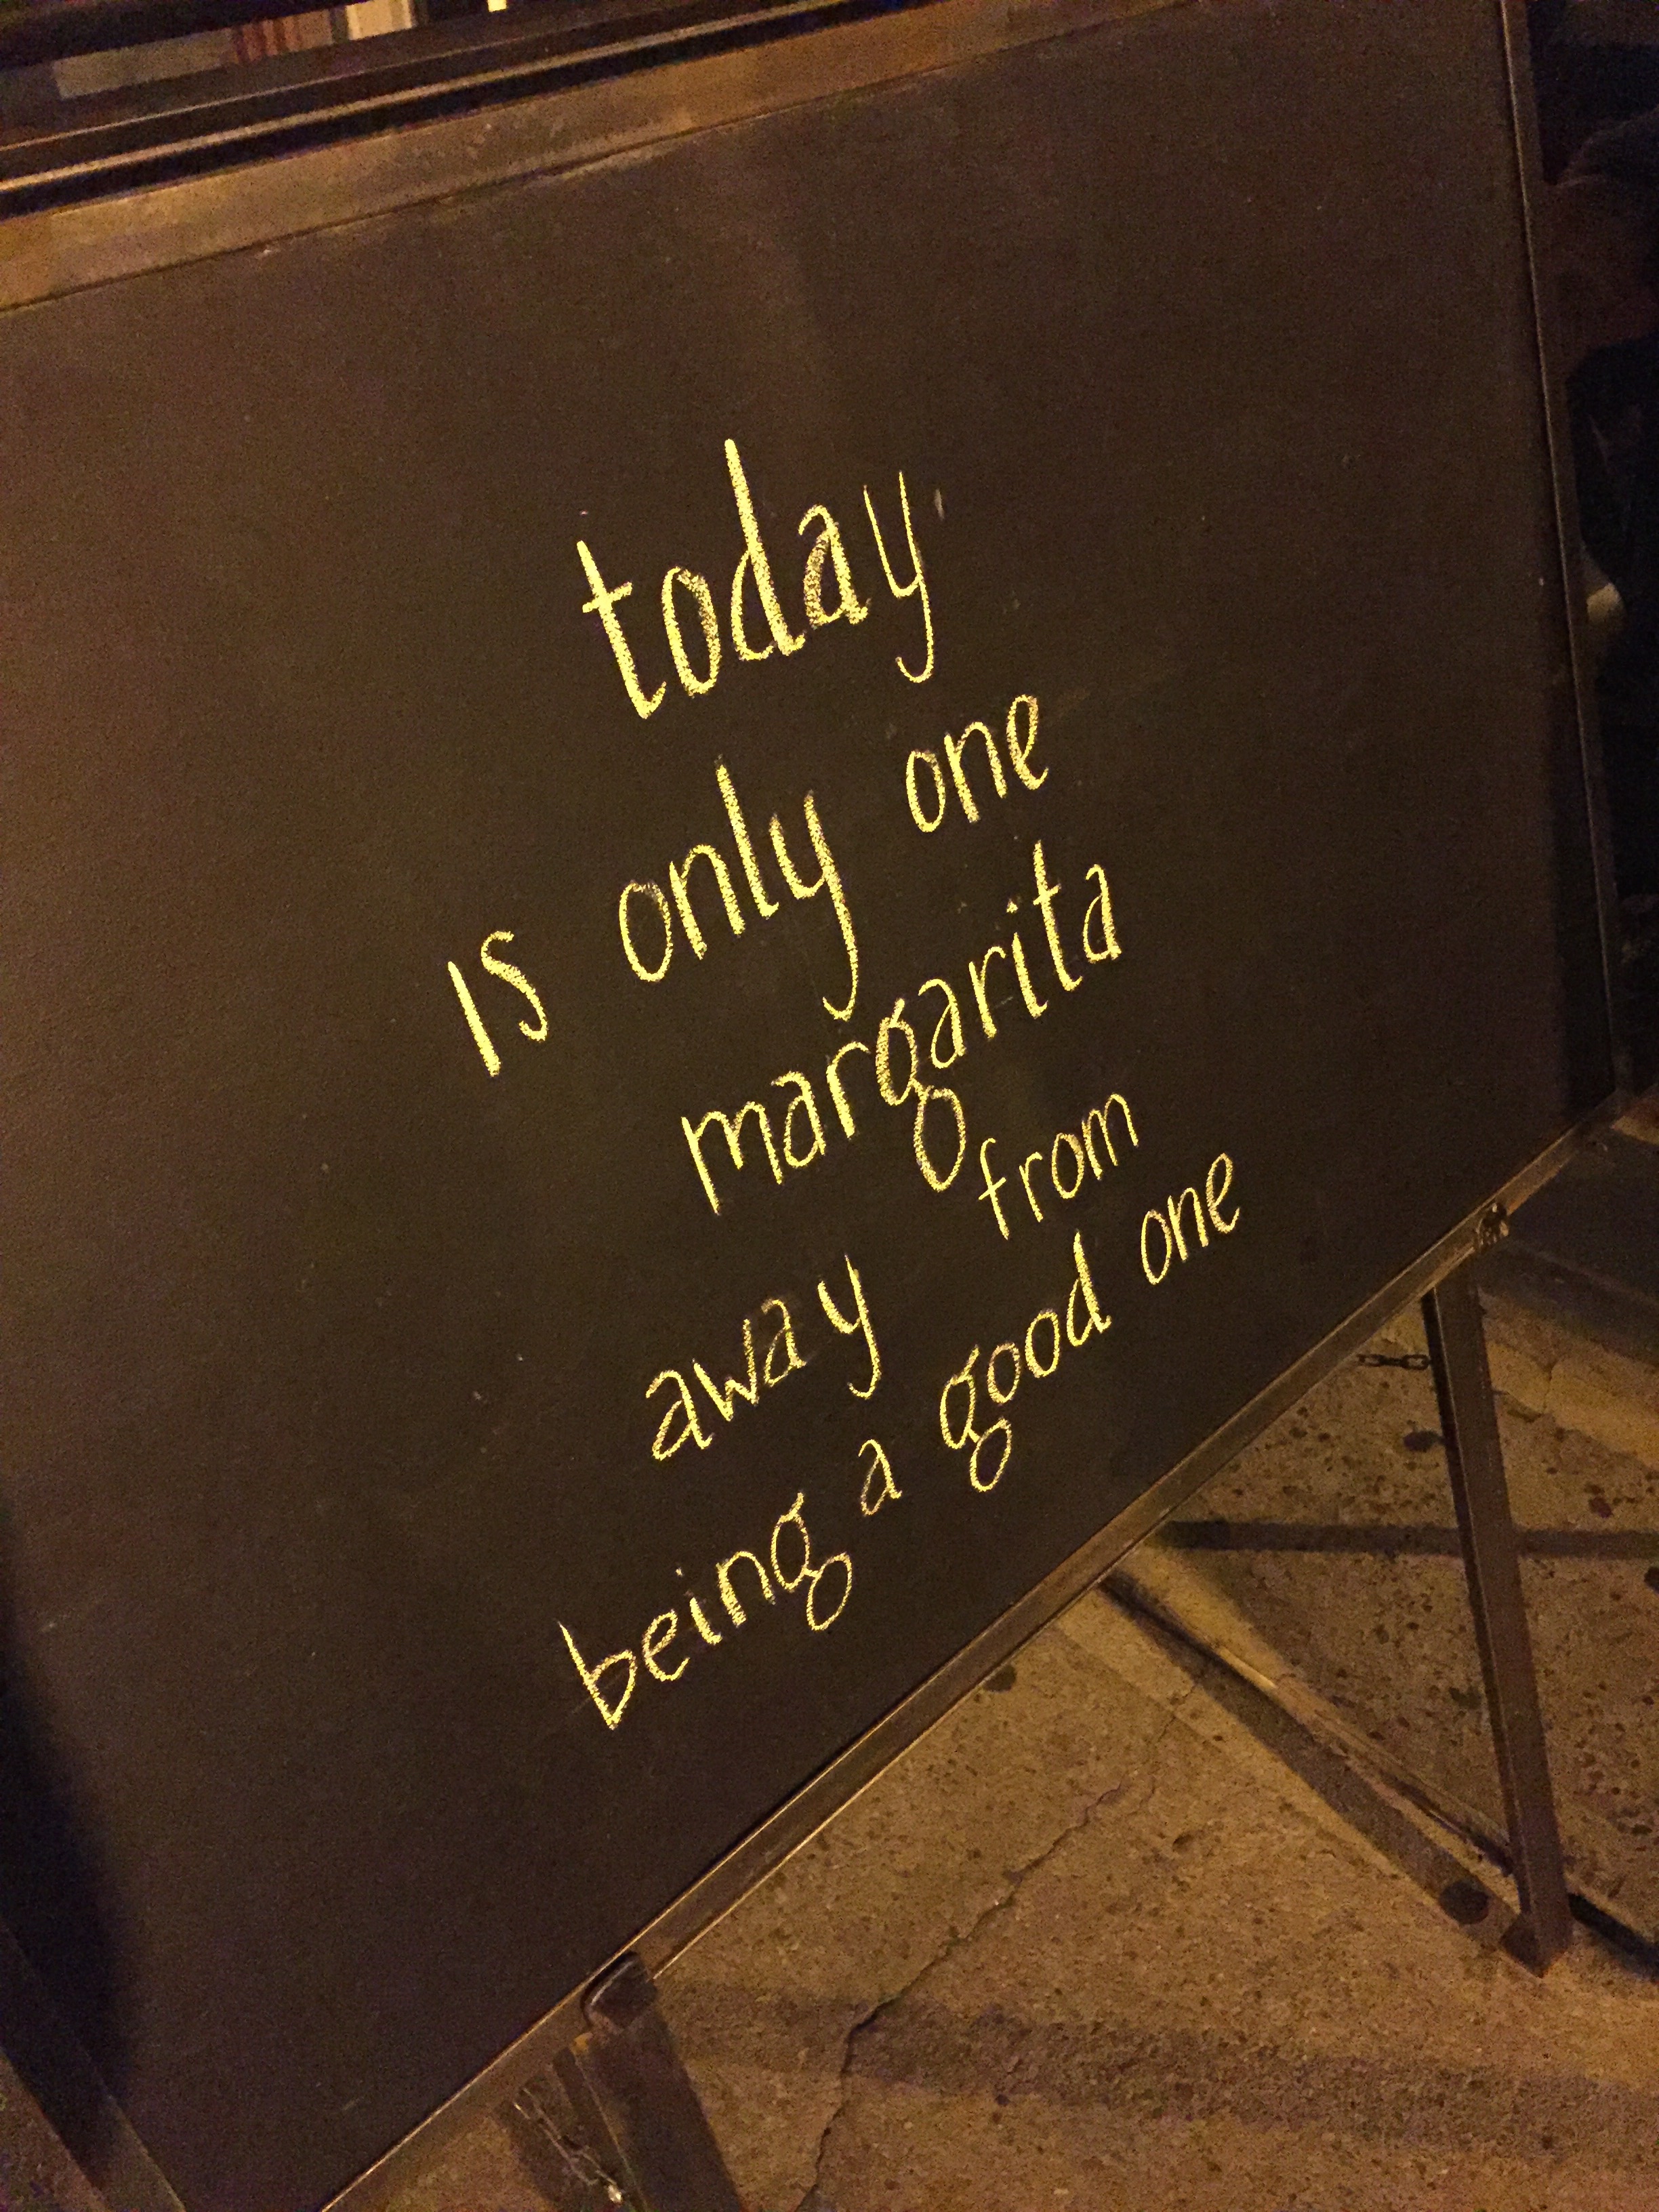 today
is only one
margarita
away from
being a good one